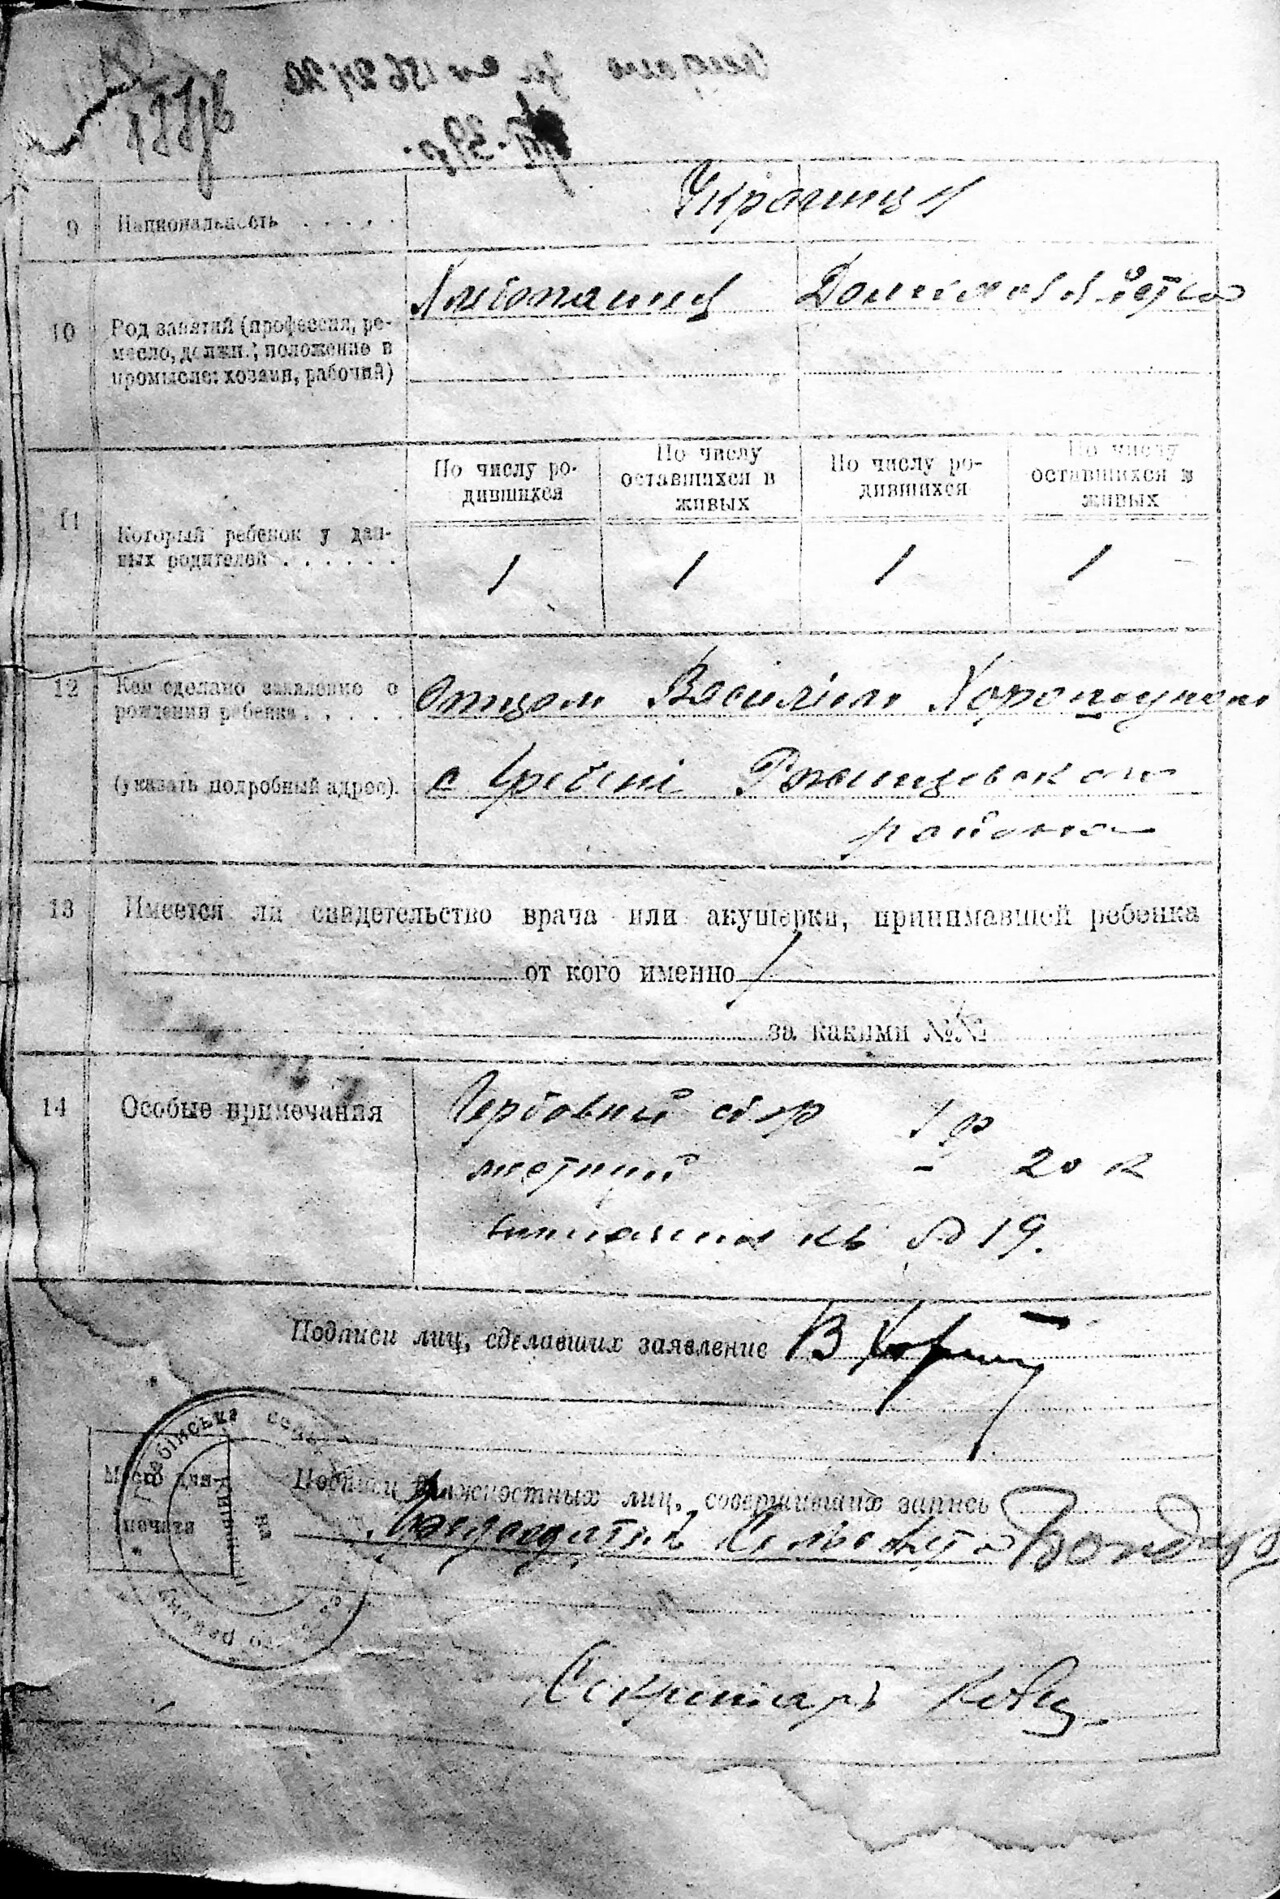 9 Национальность . . . . .
Украинци
10 Род занятий (профессия, ре-
месло, должн.; положение в
промысле: хозяин, рабочий)
Хлебопашец
Домохозяйство
11 Который ребенок у дан-
ных родителей . . . . . .
По числу ро-
дившихся
По числу
оставшихся в
живых
По числу ро-
дившихся
По числу
оставшихся в
живых
1 1 1 1
12 Кем сделано заявление о
рождении ребенка . . . . .
(указать подробный адрес).
Отцом
с Гребені Ржищевского
района
13 Имеется ли свидетельство врача или акушерки, принимавшей ребенка
от кого именно
за какими №№
14 Особые примечания
Гербовый сбор 1 р
местный – 20 к
кв № 19.
Подписи лиц, сделавших заявление
Место для
печати
Подписи должностных лиц, совершивших запись
Председатель Сельсовета Бондар
Секретарь